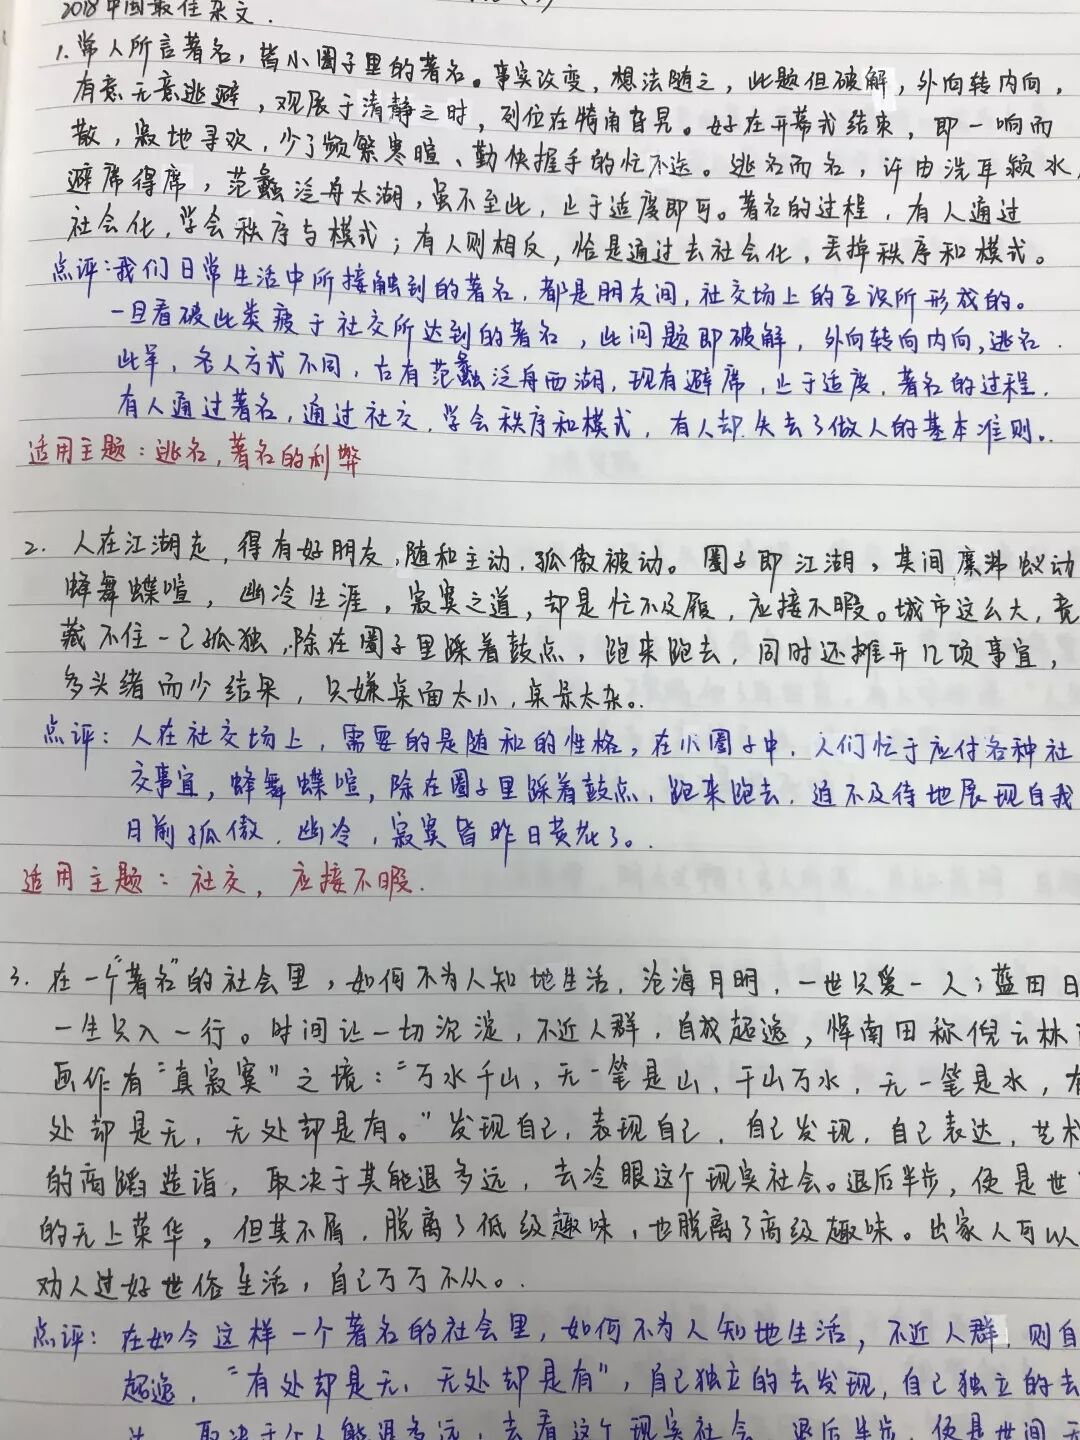 2018中国最佳杂文.
1.常人所言著名,皆小圈子里的著名。事实改变,想法随之,此题但破解,外向转内向,
有意无意逃避,观展于清静之时,列位在犄角旮旯。好在开幕式结束,即一响而
散,寂地寻欢,少了频繁寒暄、勤快握手的忙不迭。逃名而名,许由洗耳颍水,
避席得席,范蠡泛舟太湖,虽不至此,止于适度即可。著名的过程,有人通过
社会化,学会秩序与模式;有人则相反,恰是通过去社会化,丢掉秩序和模式。
点评:我们日常生活中所接触到的著名,都是朋友间,社交场上的互识所形成的。
一旦看破此类疲于社交所达到的著名,此问题即破解,外向转向内向,逃名.
此举,各人方式不同,古有范蠡泛舟西湖,现有避席,止于适度,著名的过程.
有人通过著名,通过社交,学会秩序和模式,有人却失去了做人的基本准则。
适用主题:逃名,著名的利弊
2. 人在江湖走,得有好朋友,随和主动,孤傲被动。圈子即江湖,其间麋沸蚁动
蜂舞蝶喧,幽冷生涯,寂寞之道,却是忙不及履,应接不暇。城市这么大,竟
藏不住一己孤独,除在圈子里踩着鼓点,跑来跑去,同时还摊开几项事宜,
多头绪而少结果,只嫌桌面太小,桌景太杂。
点评:人在社交场上,需要的是随和的性格,在小圈子中,人们忙于应付各种社
交事宜,蜂舞蝶喧,除在圈子里踩着鼓点,跑来跑去,迫不及待地展现自我
日前孤傲.幽冷,寂寞皆昨日黄花了。
适用主题:社交,应接不暇.
3. 在一个"著名"的社会里,如何不为人知地生活,沧海月明,一世只爱一人;蓝田日
一生只入一行。时间让一切沉淀,不近人群,自放超逸,恽南田称倪云林
画作有"真寂寞"之境:"万水千山,无一笔是山,千山万水,无一笔是水,有
处却是无,无处却是有。"发现自己,表现自己,自己发现,自己表达,艺术
的高蹈造诣,取决于其能退多远,去冷眼这个现实社会。退后半步,便是世
的无上荣华,但其不屑,脱离了低级趣味,也脱离了高级趣味。出家人可以
劝人过好世俗生活,自己万万不从。
点评:在如今这样一个著名的社会里,如何不为人知地生活,不近人群,则自
超逸,"有处却是无,无处却是有",自己独立的去发现,自己独立的去
达,取决于个人能退多远,去看这个现实社会,退后半步,便是世间无